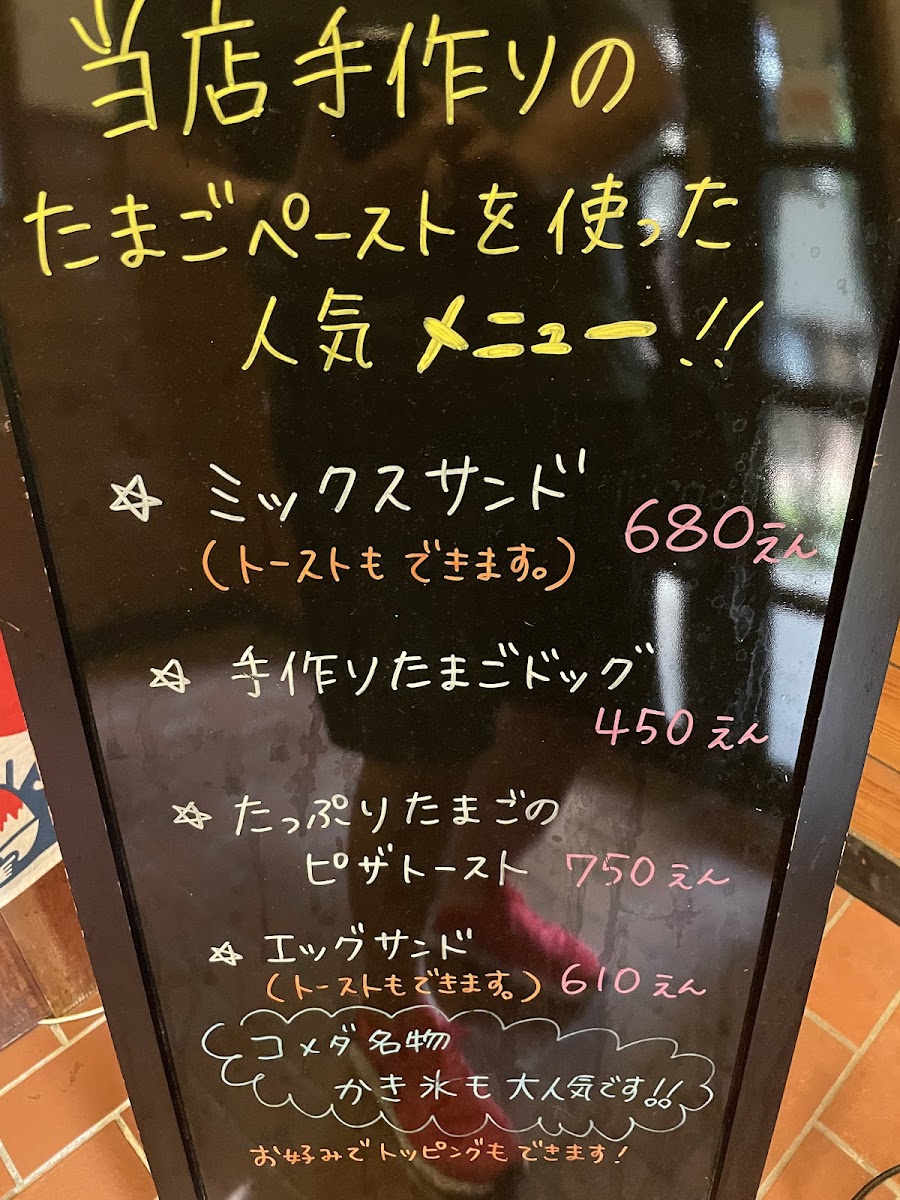 当店手作りの
たまごペーストを使った
人気メニュー!!
☆ ミックスサンド 680えん
(トーストもできます。)
☆ 手作りたまごドッグ
450えん
☆ たっぷりたまごの
ピザトースト 750えん
☆ エッグサンド
(トーストもできます。) 610えん
コメダ名物
かき氷も大人気です!!
お好みでトッピングもできます!